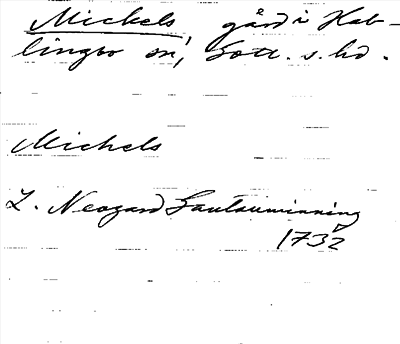 Mickels gård i Hab-
lingbo sn, Gotl. s. hd.
Michels
L. Neogard Gautauminning
1732